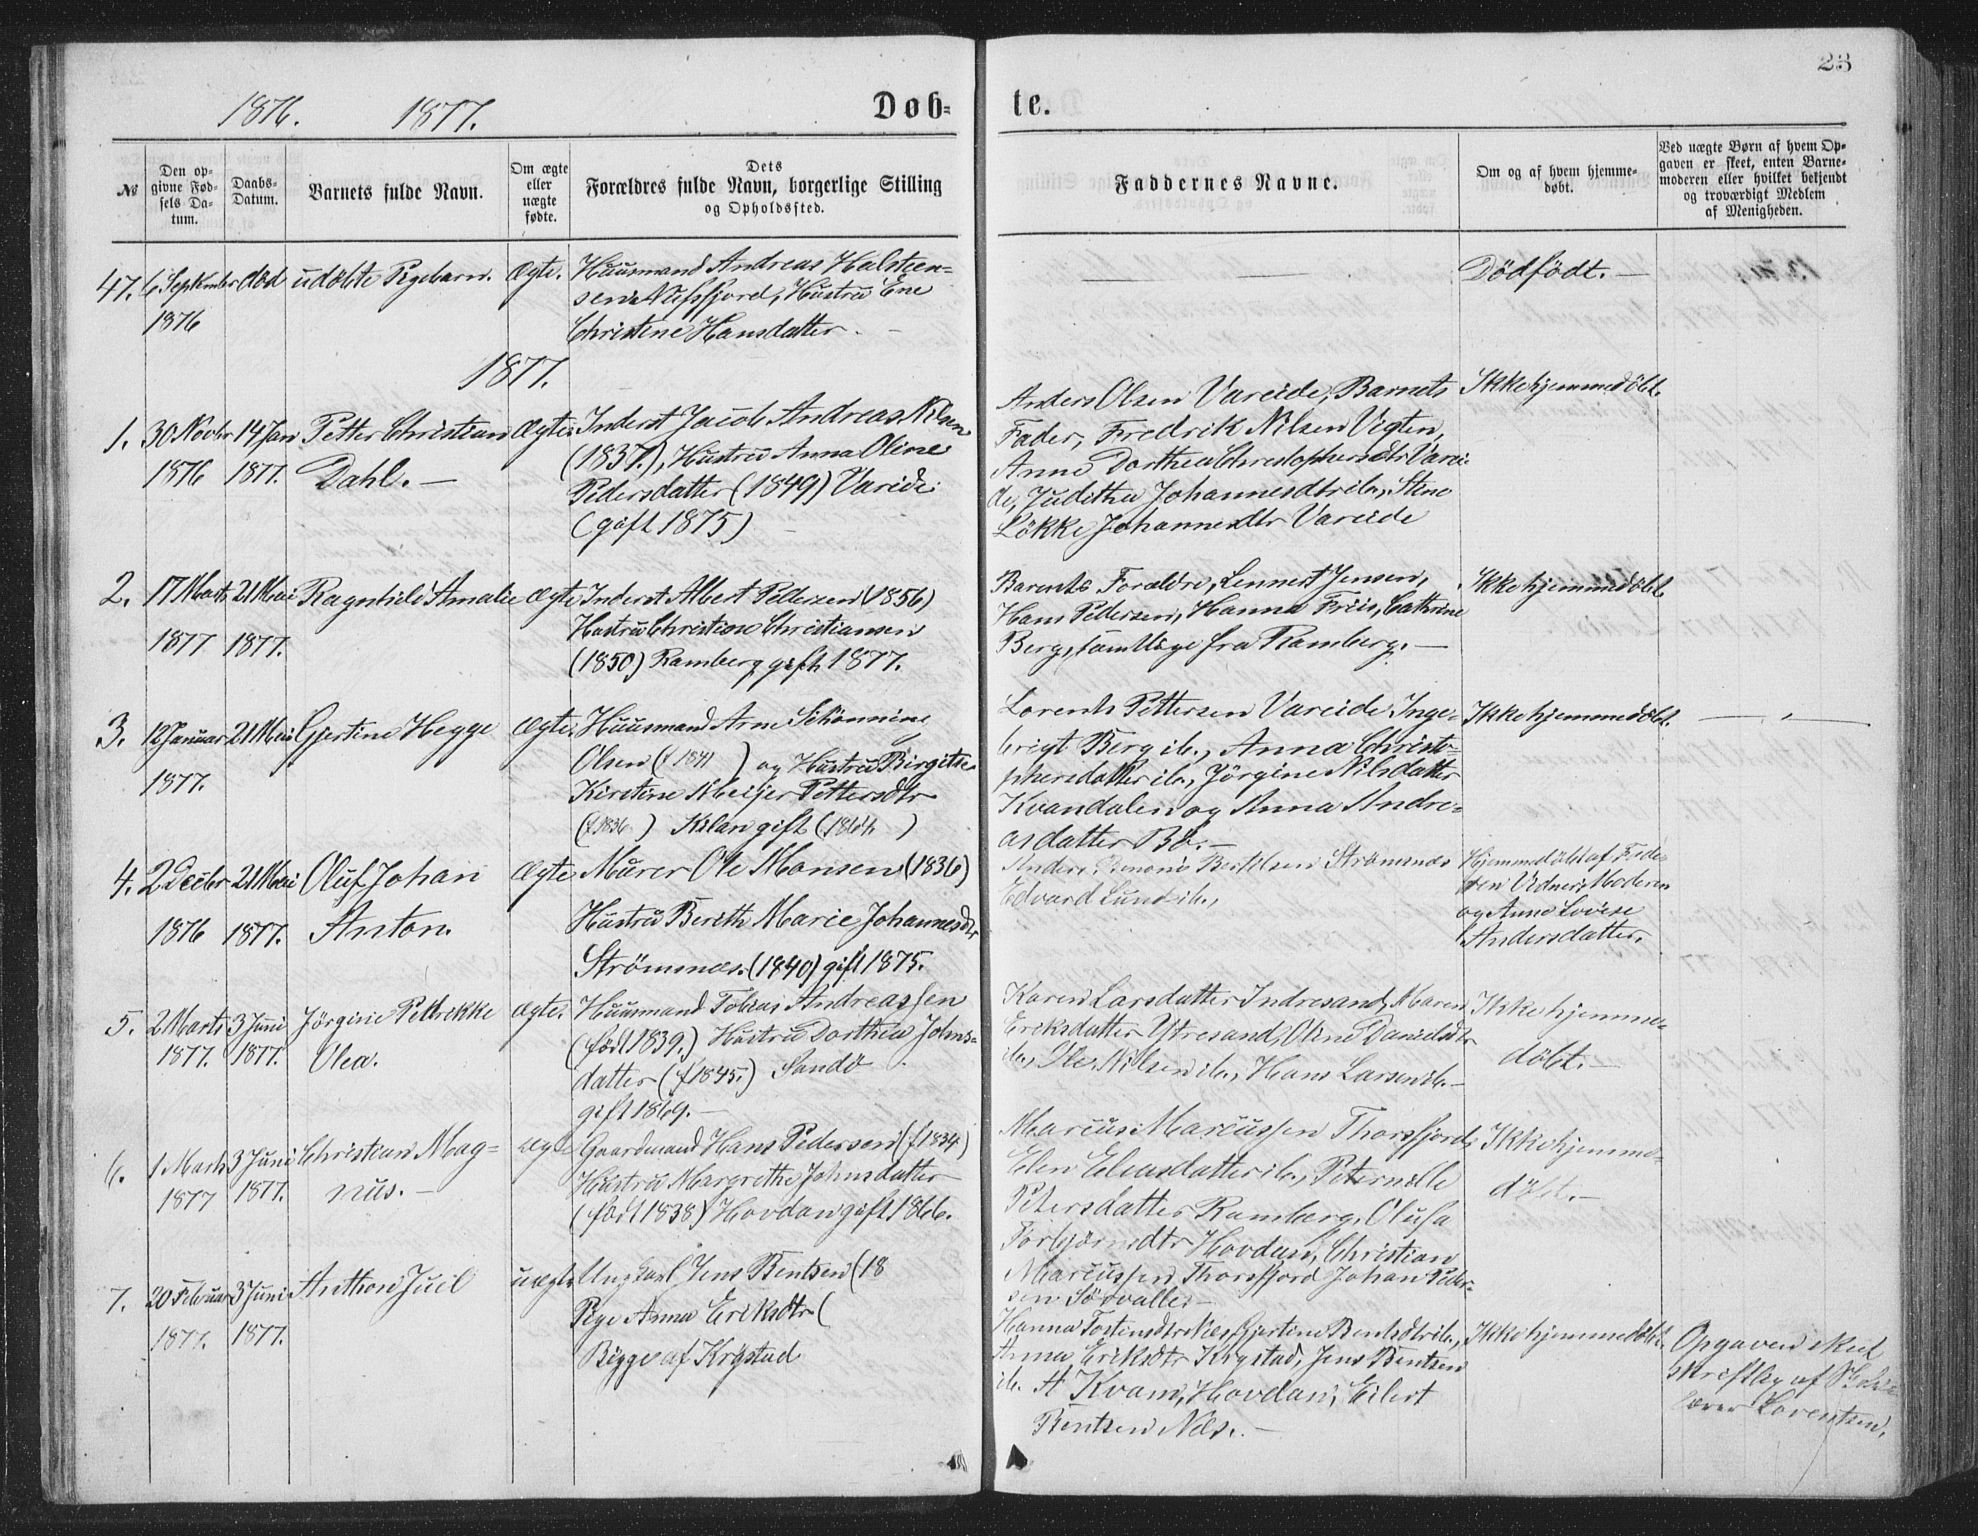 23
1876. 1877. Døb- te.
№
Den op-
givne Fød-
sels Da-
tum.
Daabs-
Datum.
Barnets fulde Navn.
Om ægte
eller
uægte
fødte.
Dets
Forældres fulde Navn, borgerlige Stilling
og Opholdssted.
Faddernes Navne.
Om og af hvem hjemme-
døbt.
Ved uægte Børn af hvem Op-
gaven er skeet, enten Barne-
moderen eller hvilket bekjendt
og troværdigt Medlem
af Menigheden.
47. 6 September død udöbte Pigebarn. Ægte.
1876
Huusmand Andreas Halsteen-
sen Nufsfjord, Hustru Ene
Christine Hansdatter. —
Dödfödt. —
1877.
1. 30 Novbr 14 Jan Petter Christian Ægte
1876 1877. Dahl. —
Inderst Jacob Andreas Nilsen
(1837.), Hustru Anna Oline
Pedersdatter (1849) Vareide
(gift 1875) —
Anders Olsen Vareide, Barnets
Fader, Fredrik Nilsen Vigten,
Anne Dorthea Christophersdtr Varei-
de, Juditha Johannesdtr ib., Stene
Lökke Johannesdtr Vareide
Ikke hjemmedöbt.
2. 17 Marts 21 Mai Ragnhild Amalie Ægte
1877 1877.
Inderst Albert Pedersen (1856)
Hustru Christiane Christiansen
(1850) Ramberg gift 1877.
Barents Forældre, Lennert Jensen,
Hans Pedersen, Hanna Friis, Cathrine
Berg, samtlige fra Ramberg. —
Ikke hjemmedöbt.
3. 12 Januar 21 Mai Gjertine Hegge Ægte
1877.
Huusmand Arne Schönning
Olsen (f 1841 ) og Hustru Birgitte
Kirstine Meijer Pettersdtr
(f 1836 ) Kilan gift (1864 )
Lorents Pettersen Vareide, Inge-
brigt Berg ib., Anna Christo-
phersdatter ib., Jörgine Nilsdatter
Kvandalen og Anna Andre-
asdatter Bö. —
Ikke hjemmedöbt.
4. 2 Decbr 21 Mai Oluf Johan Ægte
1876 1877. Anton.
Murer Ole Monsen (1836)
Hustru Berith Marie Johannesdtr
Strömsnes. (1840) gift 1875.
Anders Benoni Bertelsen Strömsnes
Edvard Lund ib.,
Hjemmedöbt af Fade-
ren Vidner, Moderen
og Anne Lovise
Andersdatter.
5. 2 Marts 3 Juni Jörgine Pettrikke ægte.
1877. 1877. Olea.
Huusmand Tobias Andreassen
(född 1839.) Hustru Dorthea Johns-
datter (f 1845.) Sandö
gift 1869. —
Karen Larsdatter Indresand, Maren
Eriksdatter Ytresand, Oline Danielsdtr
ib., Ole Nilsen ib., Hans Larsen ib. —
Ikke hjemme-
döbt. —
6. 1 Marts 3 Juni Christian Mag- ægte
1877 1877. nus. —
Gaardmand Hans Pedersen (f 1834)
Hustru Margrethe Johnsdatter
(född 1838) Hovdan gift 1866.
Marcus Marcussen Thorsfjord,
Elen Eliasdatter ib., Peternelle
Petersdatter Ramberg, Olufa
Torbjörnsdtr Hovdan, Christian
Marcussen Thorsfjord Johan Peder-
sen Sörvalle. —
Ikke hjemme-
döbt. —
7. 20 Februar 3 Juni Anthon Juel uægte
1877. 1877.
Ungkarl Jens Bentsen (18
Pige Anna Eriksdtr (
Begge af Krystad
Hanna Tostensdtr Nes, Gjertine Bentsdtr ib.,
Anna Eriksdtr Krystad, Jens Bentsen
ib. A Kvam, Hovdan, Eilert
Bentsen Nes. —
Ikke hjemmedöbt.
Opgaven skeet
skriftlig af Skole-
lærer Lorentzen.